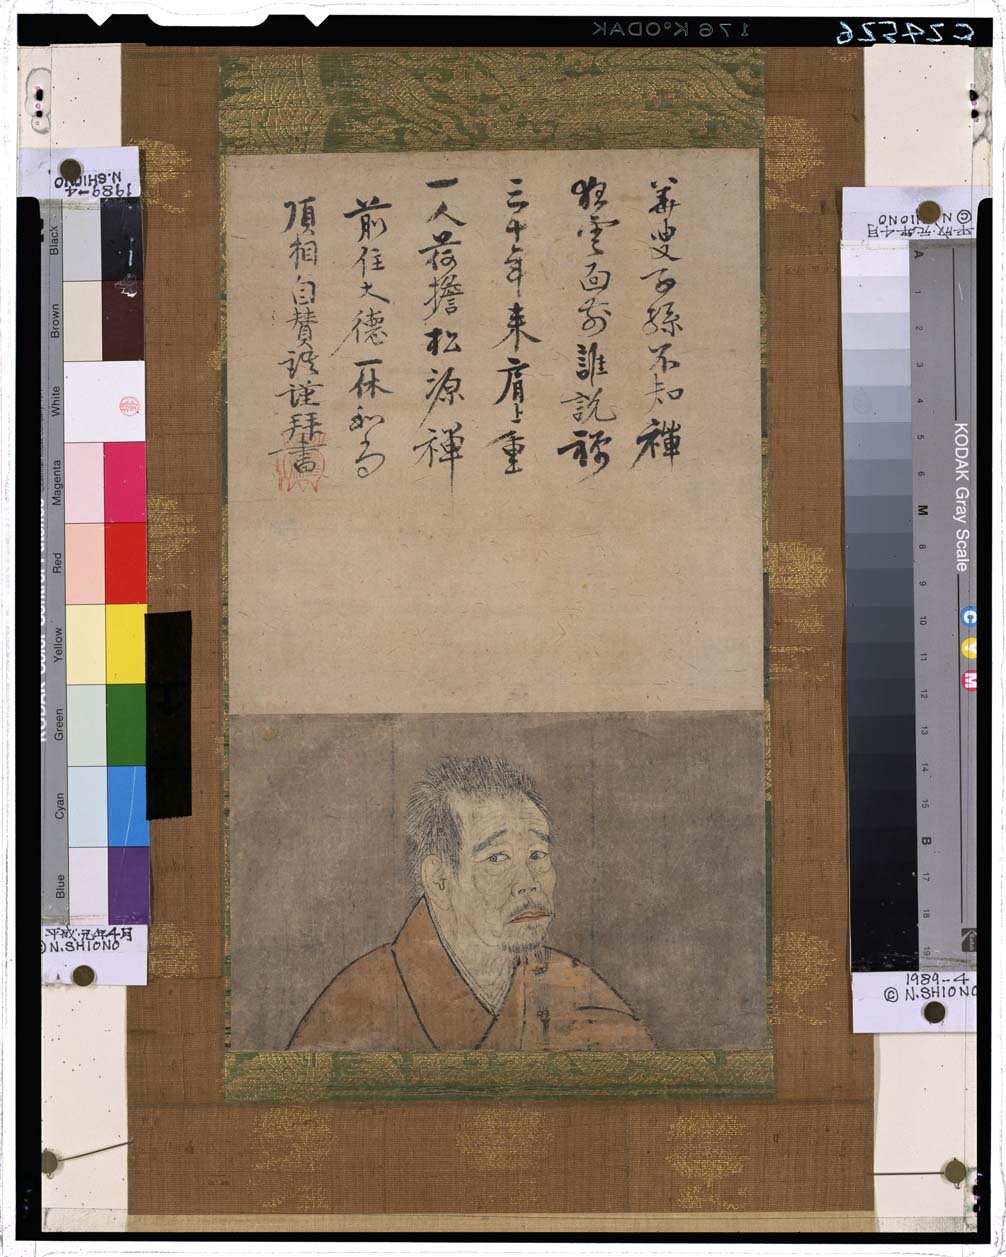 C24526
176 KODAK
華叟子孫不知禪
狂雲面前誰説禪
三十年来肩上重
一人荷擔松源禪
前住大德一休和尚
頂相自賛謹拝書
1989-4
N.SHIONO
Black
Brown
White
Magenta
Red
Yellow
Green
Cyan
Blue
平成元年4月
© N.SHIONO
平成元年4月
© N.SHIONO
A
1
2
3
4
5
6
M
8
9
10
11
12
13
14
15
B
17
18
19
KODAK Gray Scale
C
Y
M
Kodak
1989-4
© N.SHIONO